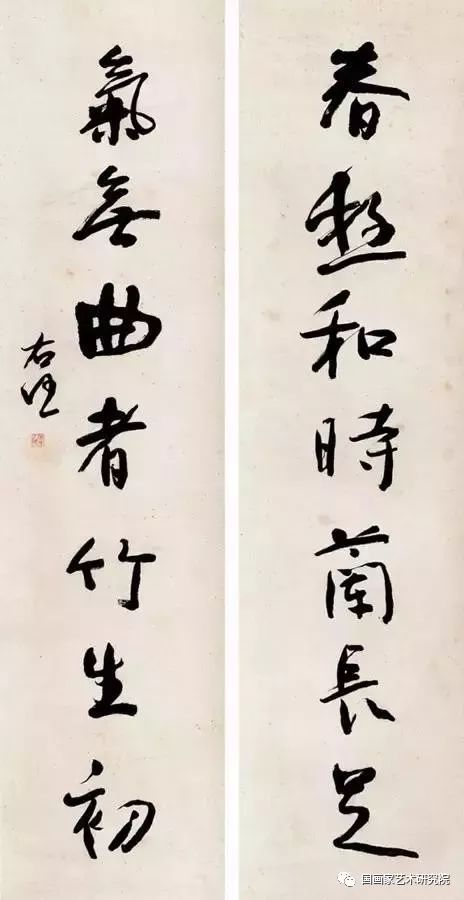 春極和時蘭長足
氣無曲者竹生初
右任
国画家艺术研究院